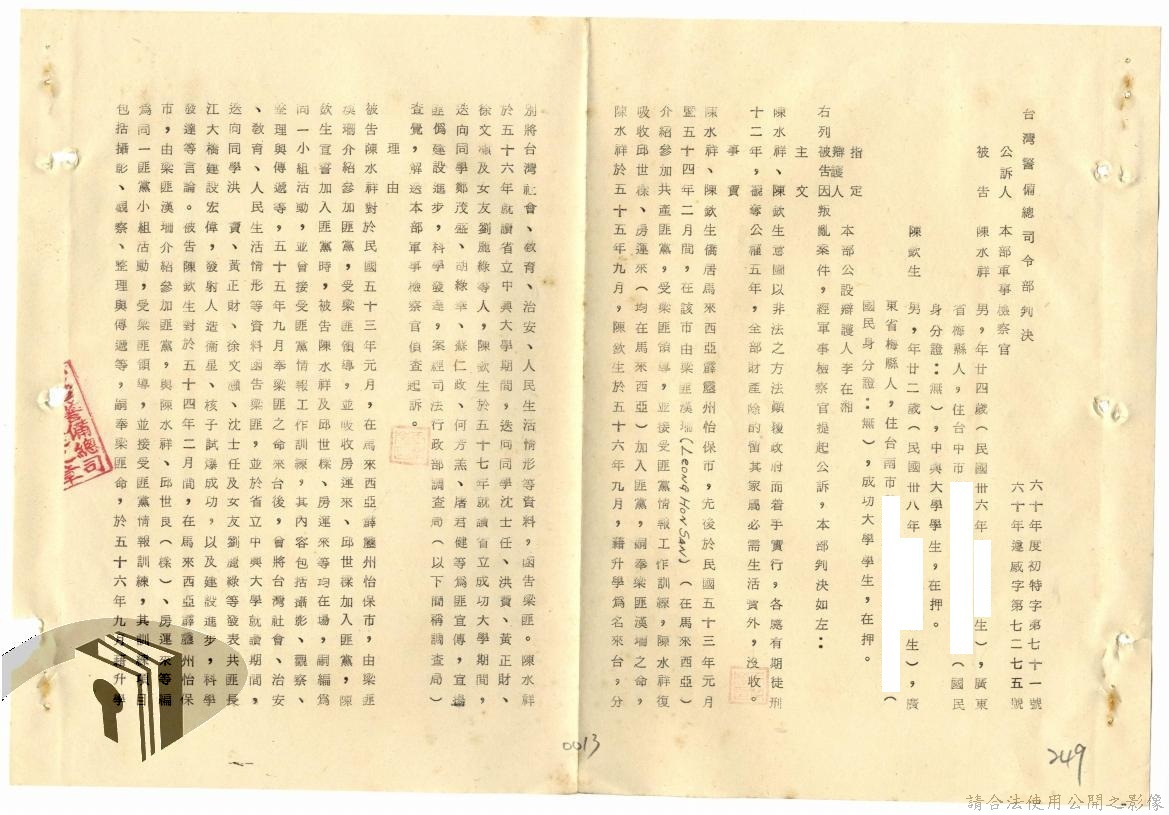 台灣警備總司令部判決
六十年度初特字第七十一號
六十年遞感字第七二七五號
公訴人　本部軍事檢察官
被告　陳水祥　男，年廿四歲（民國卅六年　生），廣東
省梅縣人，住台中市　（國民
身分證：無），中興大學學生，在押。
陳欽生　男，年廿二歲（民國卅八年　生），廣
東省梅縣人，住台南市　（
國民身分證：無），成功大學學生，在押。
指定辯護人　本部公設辯護人李在湘
右列被告因叛亂案件，經軍事檢察官提起公訴，本部判決如左：
主文
陳水祥、陳欽生意圖以非法之方法顛覆政府而着手實行，各處有期徒刑
十二年，褫奪公權五年，全部財產除酌留其家屬必需生活費外，沒收。
事實
陳水祥、陳欽生僑居馬來西亞霹靂州怡保市，先後於民國五十三年元月
暨五十四年二月間，在該市由梁匪漢珊(LEONG HON SAN)（在馬來西亞）
介紹參加共產匪黨，受梁匪領導，並接受匪黨情報工作訓練，陳水祥復
吸收邱世樑、房運來（均在馬來西亞）加入匪黨，嗣奉梁匪漢珊之命，
陳水祥於五十五年九月，陳欽生於五十六年九月，藉升學為名來台，分
別將台灣社會、敎育、治安、人民生活情形等資料，函告梁匪。陳水祥
於五十六年就讀省立中興大學期間，迭向同學沈士任、洪賁、黃正財、
徐文顯及女友劉麗綠等人，陳欽生於五十七年就讀省立成功大學期間，
迭向同學鄭茂盛、胡綠華、蘇仁政、何方熹、屠君健等為匪宣傳，宣揚
匪僞建設進步，科學發達，案經司法行政部調查局（以下簡稱調查局）
查覺，解送本部軍事檢察官偵查起訴。
理由
被告陳水祥對於民國五十三年元月，在馬來西亞霹靂州怡保市，由梁匪
漢珊介紹參加匪黨，受梁匪領導，並吸收房運來、邱世樑加入匪黨，陳
欽生宣誓加入匪黨時，被告陳水祥及邱世樑、房運來等均在場，嗣編為
同一小組活動，並曾接受匪黨情報工作訓練，其內容包括攝影、觀察、
整理與傳遞等，五十五年九月奉梁匪之命來台後，會將台灣社會、治安
、敎育、人民生活情形等資料函告梁匪，並於省立中興大學就讀期間，
迭向同學洪賁、黃正財、徐文顯、沈士任及女友劉麗綠等發表共匪長
江大橋建設宏偉，發射人造衛星、核子試爆成功，以及建設進步，科學
發達等言論。被告陳欽生對於五十四年二月間，在馬來西亞霹靂州怡保
市，由梁匪漢珊介紹參加匪黨，與陳水祥、邱世良（樑）、房運來等編
為同一匪黨小組活動，受梁匪領導，並接受匪黨情報訓練，其訓練項目
包括攝影、觀察、整理與傳遞等，嗣奉梁匪命，於五十六年九月藉升學
一
0013
249
請合法使用公開之影像